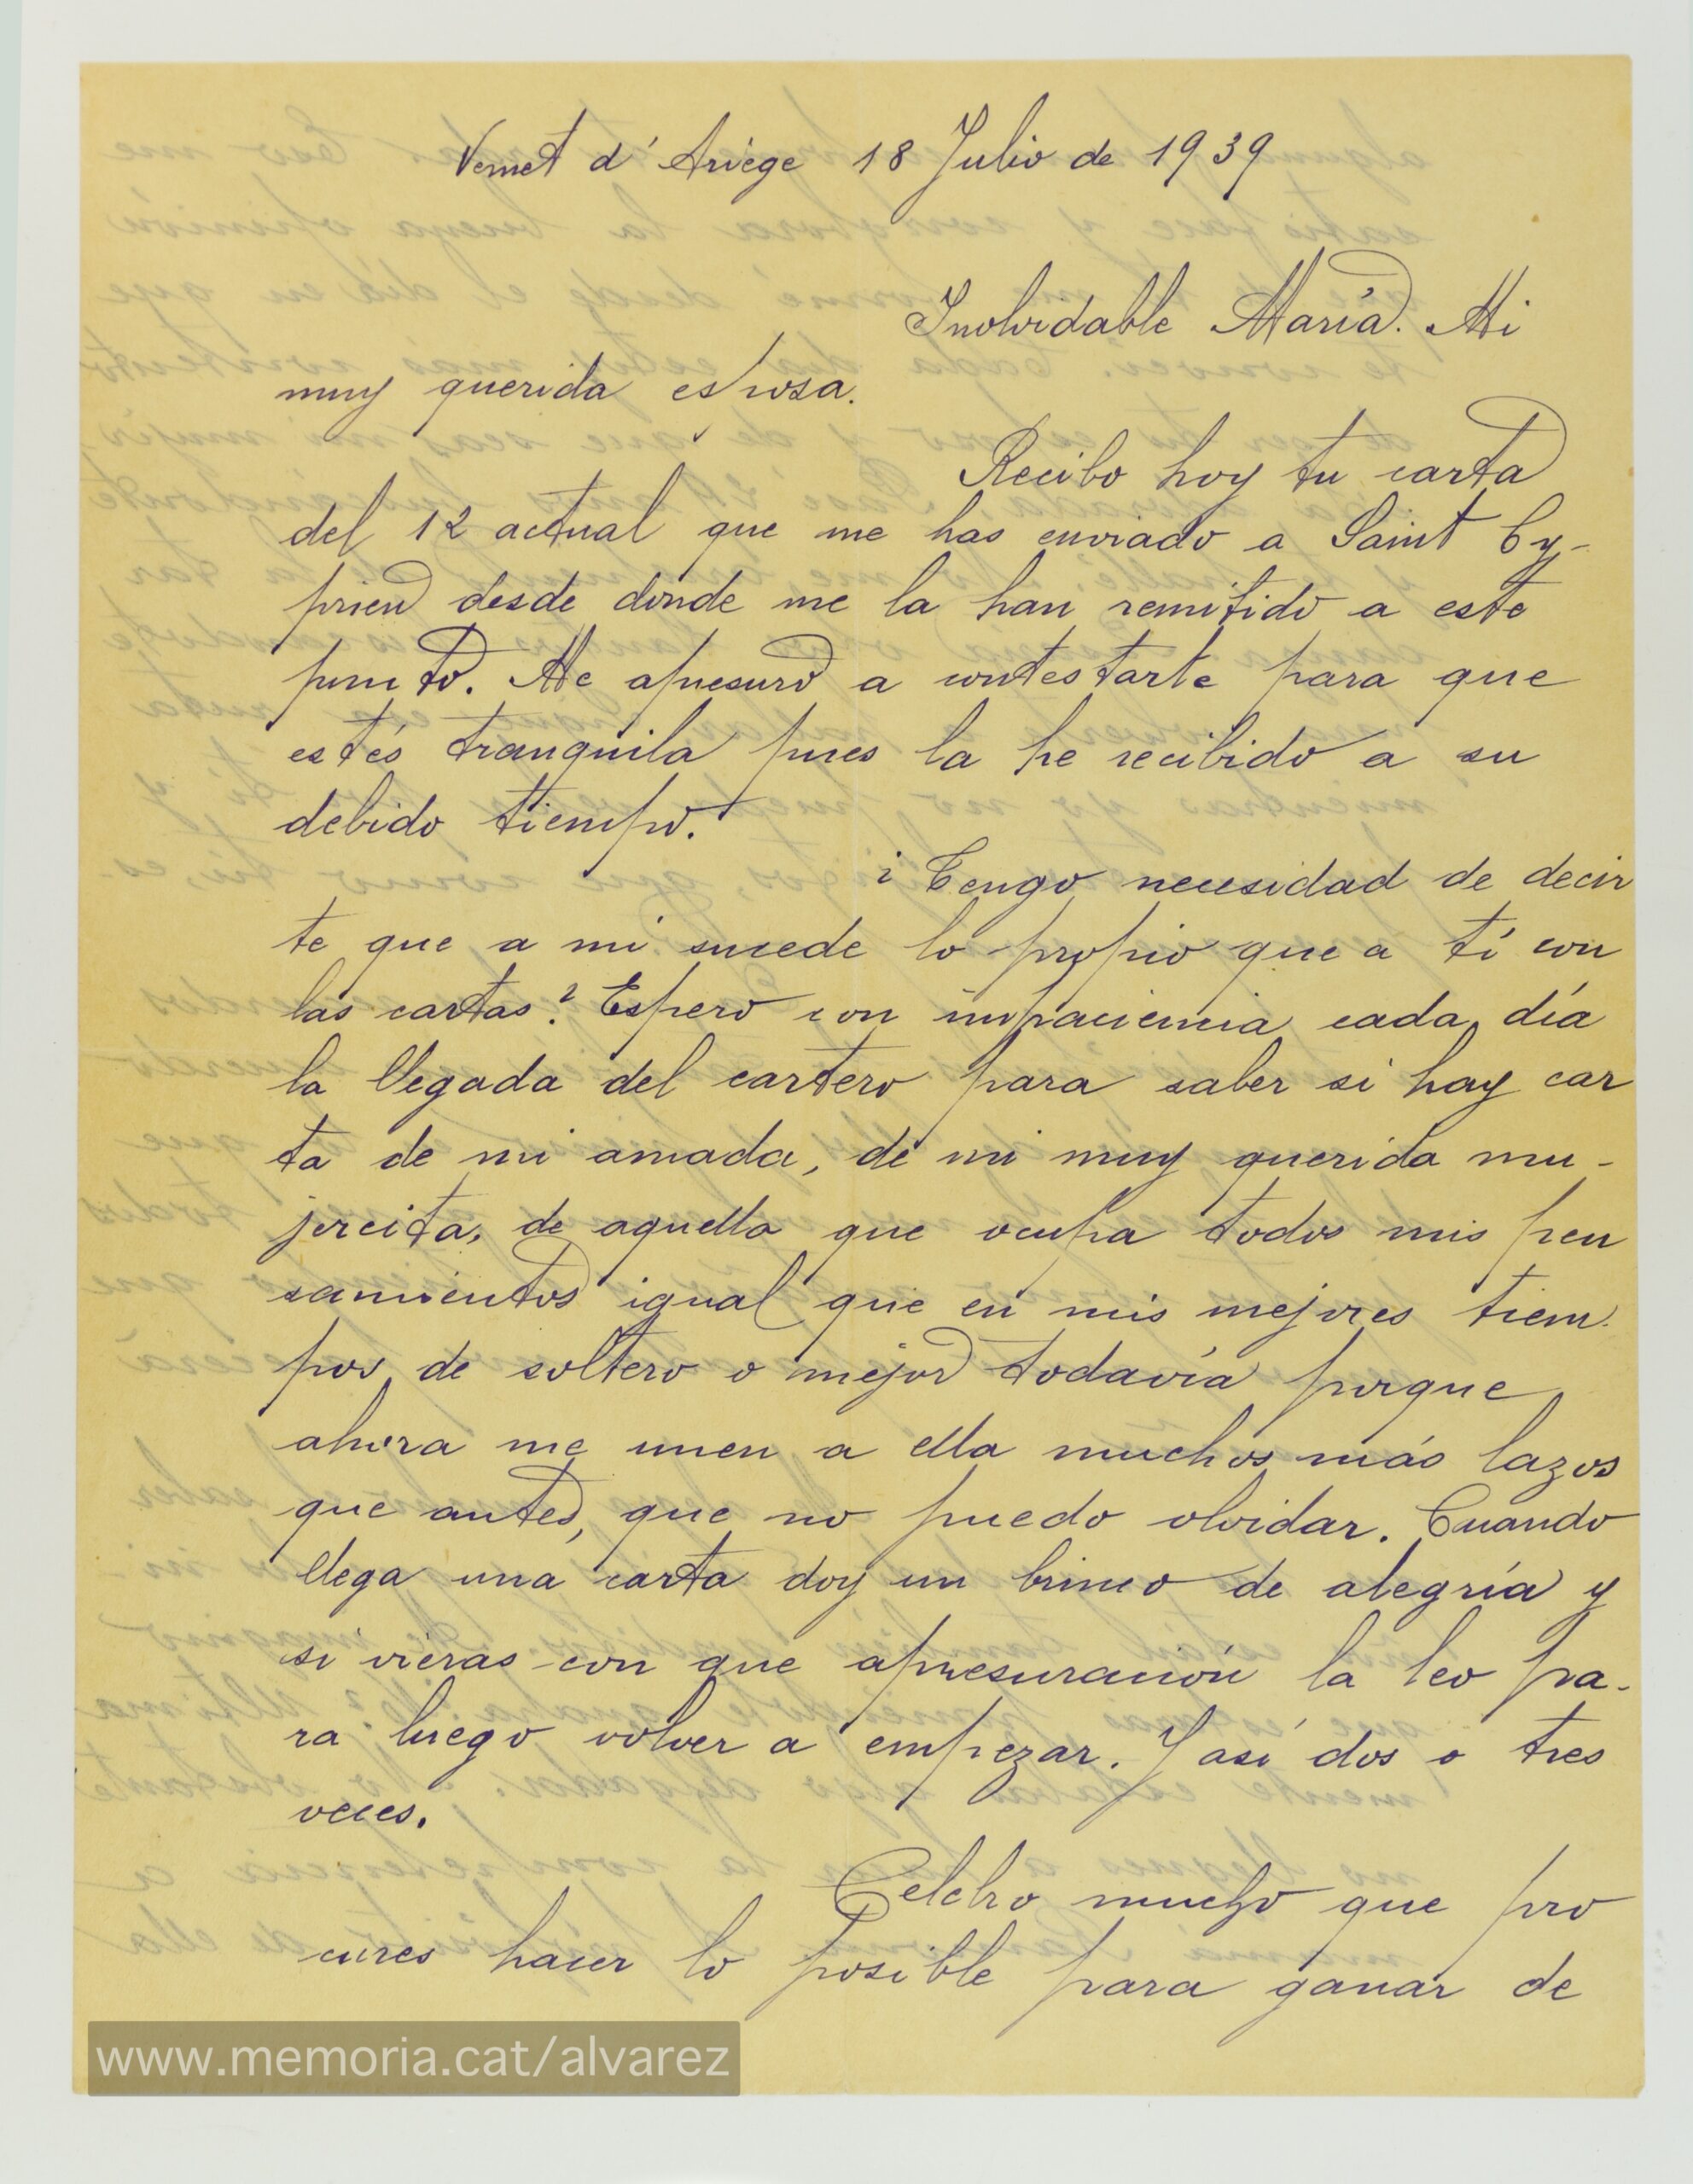 Vernet d'Ariège 18 Julio de 1939
Inolvidable María. Mi
muy querida esposa.
Recibo hoy tu carta
del 12 actual que me has enviado a Saint Cy-
prien desde donde me la han remitido a este
punto. Me apresuro a contestarte para que
estés tranquila pues la he recibido a su
debido tiempo.
¿Tengo necesidad de decir
te que a mi sucede lo propio que a tí con
las cartas? Espero con impaciencia cada día
la llegada del cartero para saber si hay car
ta de mi amada, de mi muy querida mu-
jercita, de aquella que ocupa todos mis pen
samientos igual que en mis mejores tiem-
pos de soltero o mejor todavía porque
ahora me unen a ella muchos más lazos
que antes, que no puedo olvidar. Cuando
llega una carta doy un brinco de alegría y
si vieras con que apresuración la leo pa-
ra luego volver a empezar. Y así dos o tres
veces.
Celebro mucho que pro
cures hacer lo posible para ganar de
www.memoria.cat/alvarez